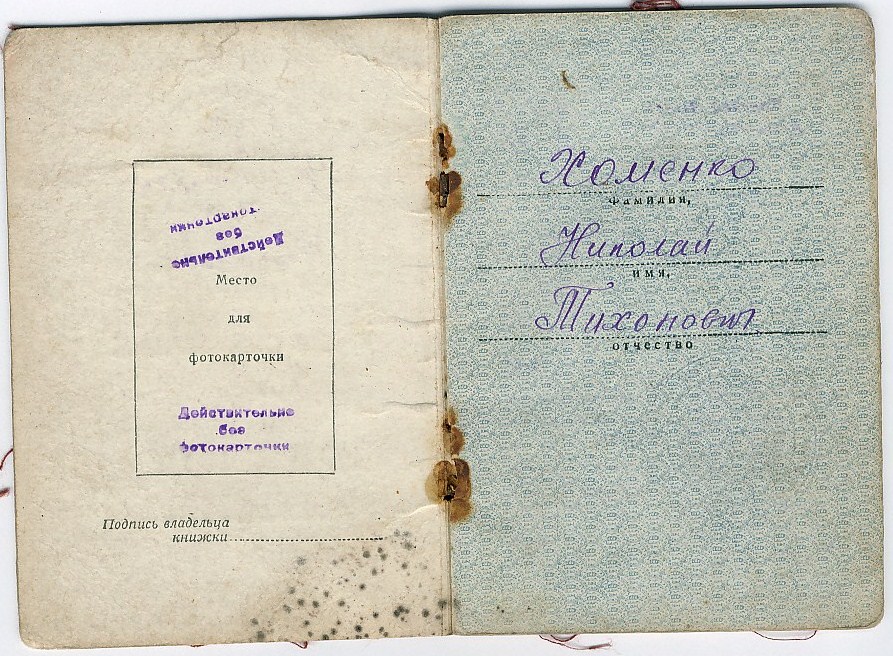 Действительно
без
фотокарточки
Место
для
фотокарточки
Действительно
без
фотокарточки
Подпись владельца
книжки
Хоменко
фамилия,
Николай
имя,
Тихонович
отчество